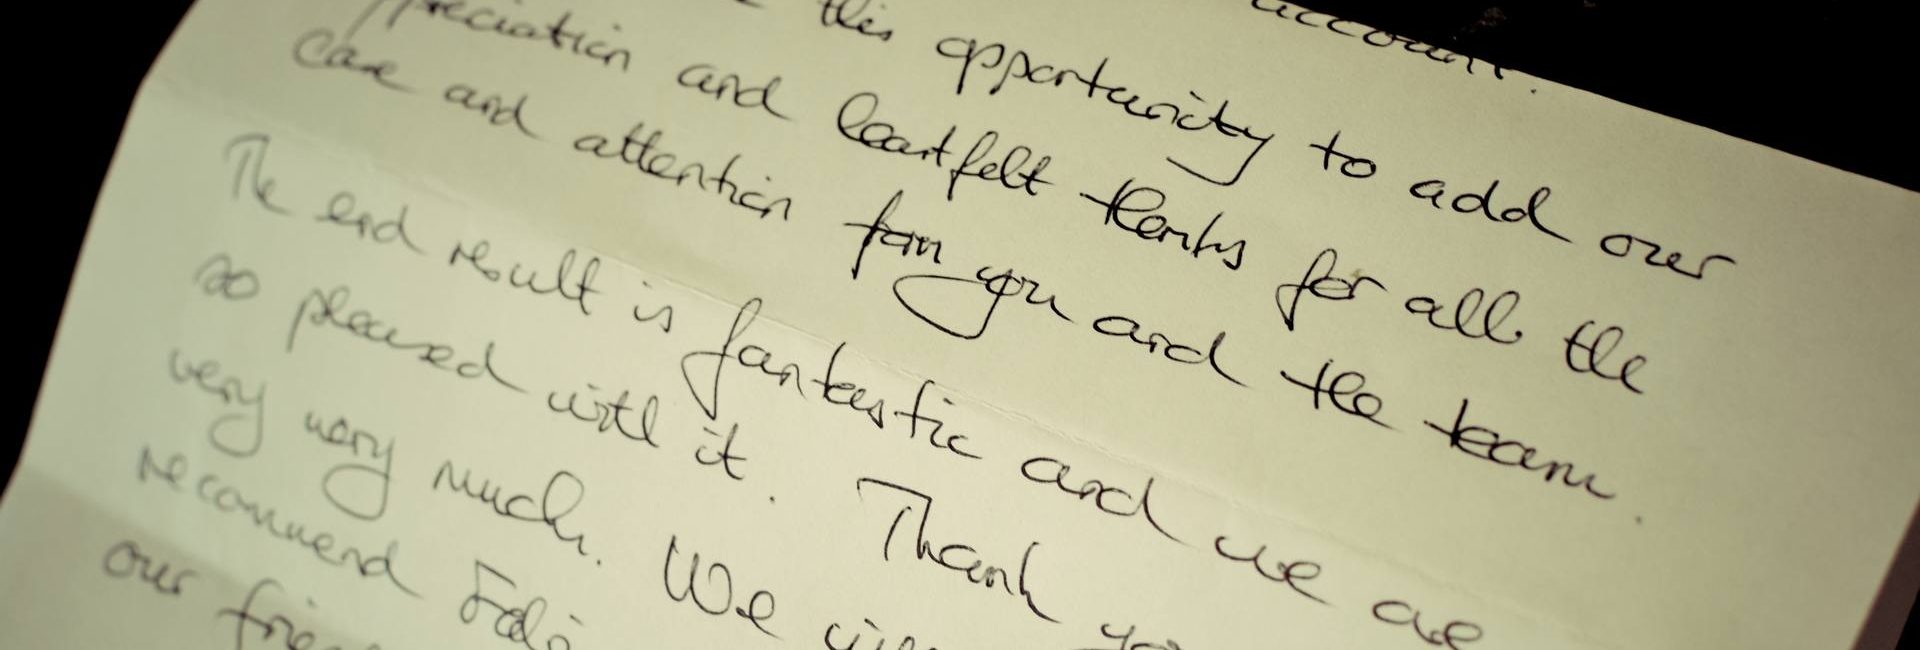 account.
this opportunity to add our
preciation and heartfelt thanks for all the
care and attention from you and the team.
The end result is fantastic and we are
so pleased with it. Thank yo
very very much. We
recommend
our frie